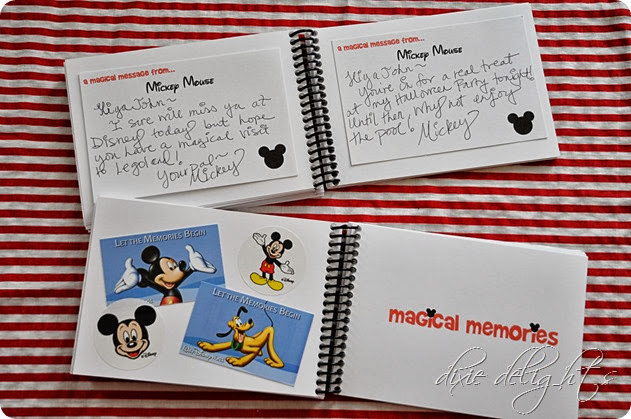 a magical message from...
Mickey Mouse
Hiya John~
I sure will miss ya at
Disney today but hope
you have a magical visit
to Legoland!
Your pal~
Mickey
a magical message from...
Mickey Mouse
Hiya John~
You're in for a real treat
at my Halloween Party tonight!
Until then, why not enjoy
the pool?
Mickey
Let the Memories Begin
Let the Memories Begin
magical memories
dixie delights